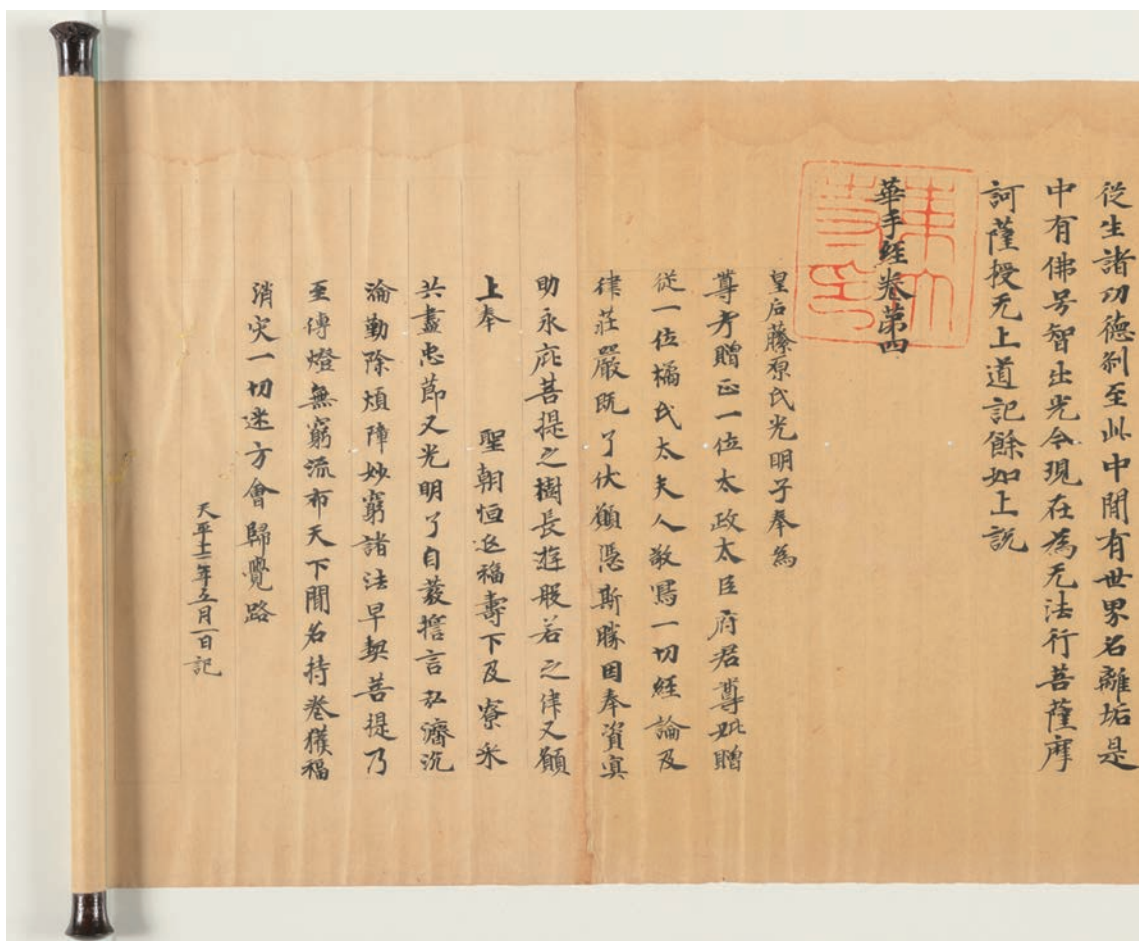 從生諸功德刹至此中間有世界名離垢是
中有佛号智出光令現在為无法行菩薩摩
訶薩授无上道記餘如上説
華手経巻第四
東大寺印
皇后藤原氏光明子奉為
尊考贈正一位太政太臣府君尊妣贈
従一位橘氏太夫人敬寫一切経論及
律荘嚴既了伏願憑斯勝因奉資冥
助永庇菩提之樹長遊般若之津又願
上奉　聖朝恒延福壽下及寮采
共盡忠節又光明子自發誓言弘濟沉
淪勤除煩障妙窮諸法早契菩提乃
至傳燈無窮流布天下聞名持巻獲福
消灾一切迷方會歸覺路
天平十二年五月一日記